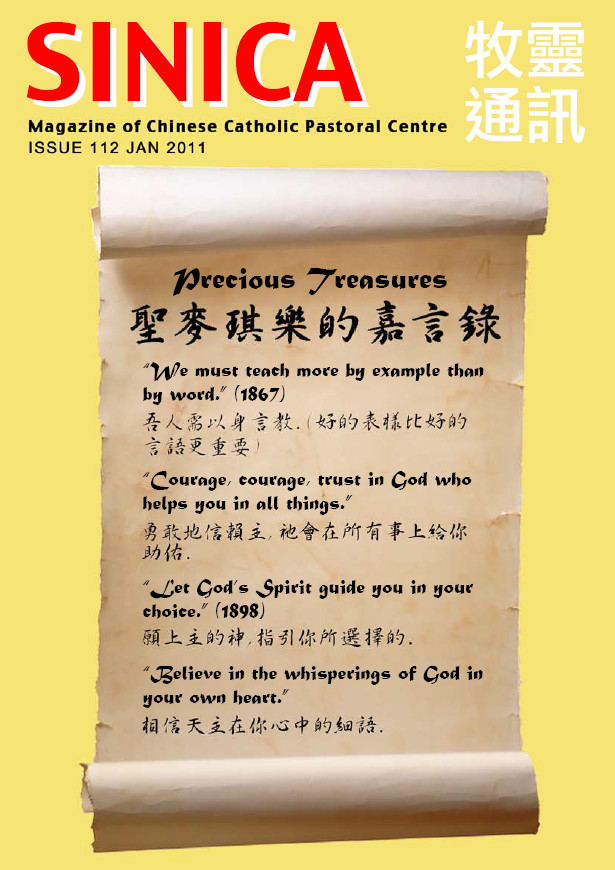 SINICA
牧靈
通訊
Magazine of Chinese Catholic Pastoral Centre
ISSUE 112 JAN 2011
Precious Treasures
聖麥琪樂的嘉言錄
“We must teach more by example than
by word.” (1867)
吾人需以身言教.(好的表樣比好的
言語更重要)
“Courage, courage, trust in God who
helps you in all things.”
勇敢地信賴主,祂會在所有事上給你
助佑.
“Let God's Spirit guide you in your
choice.” (1898)
願上主的神,指引你所選擇的.
“Believe in the whisperings of God in
your own heart.”
相信天主在你心中的細語.